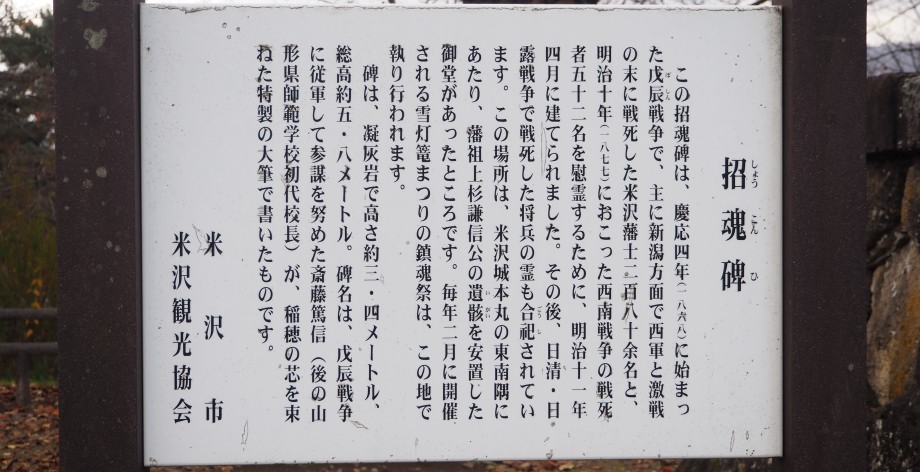 招魂碑
しょうこんひ
この招魂碑は、慶応四年(一八六八)に始まっ
た戊辰戦争で、主に新潟方面で西軍と激戦
ぼしん
の末に戦死した米沢藩士二百八十余名と、
明治十年(一八七七)におこった西南戦争の戦死
者五十二名を慰霊するために、明治十一年
四月に建てられました。その後、日清・日
露戦争で戦死した将兵の霊も合祀されてい
ごうし
ます。この場所は、米沢城本丸の東南隅に
あたり、藩祖上杉謙信公の遺骸を安置した
いがい
御堂があったところです。毎年二月に開催
される雪灯篭まつりの鎮魂祭は、この地で
執り行われます。
碑は、凝灰岩で高さ約三・四メートル、
総高約五・八メートル。碑名は、戊辰戦争
に従軍して参謀を努めた斎藤篤信(後の山
形県師範学校初代校長)が、稲穂の芯を束
ねた特製の大筆で書いたものです。
米沢市
米沢観光協会